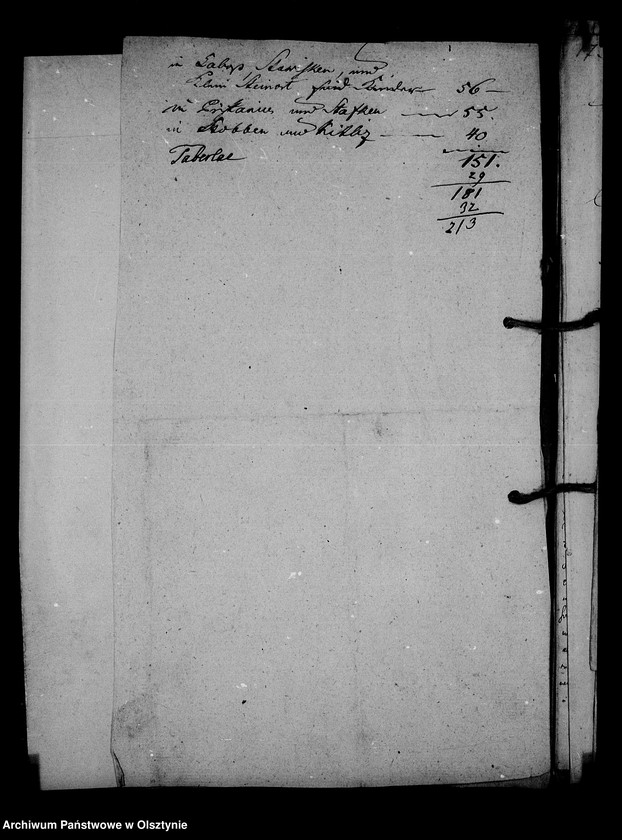 in Labap, Stawisken, und
Klein Steinort sind Kinder 56 —
in Pristanien und Stafken — 55.
in Stobben und Kittliz — 40
Taberlac 151.
29
181
32
213
Archiwum Państwowe w Olsztynie